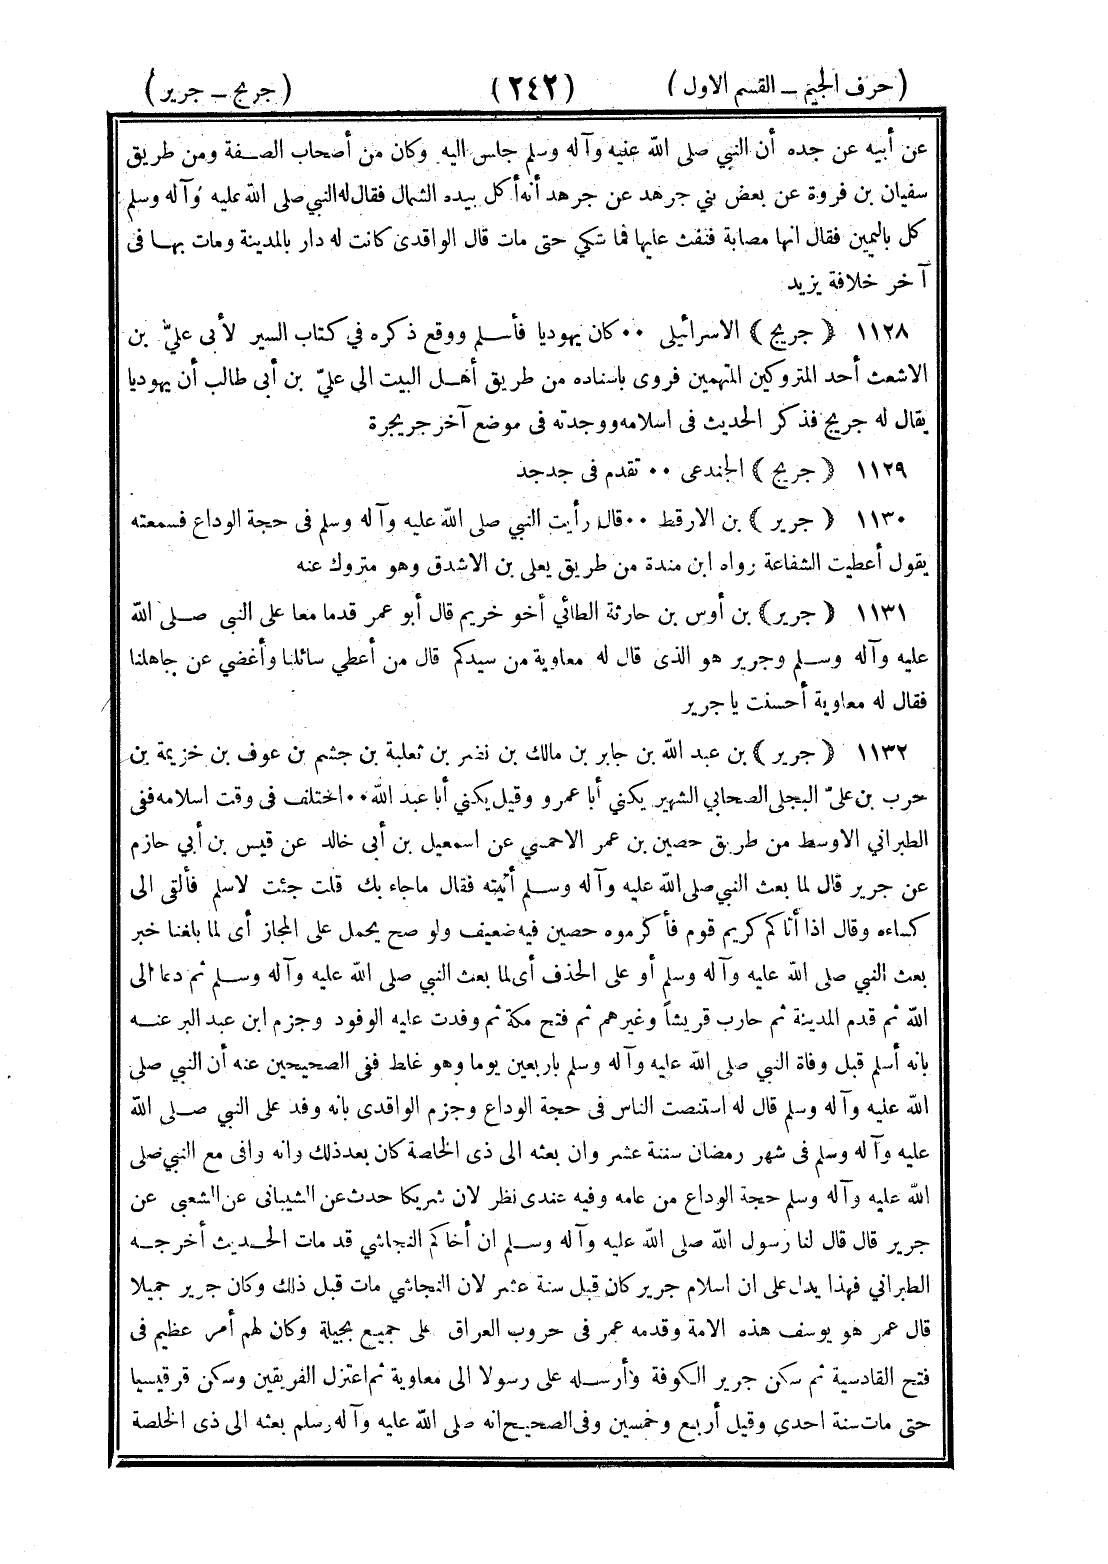 (حرف الجيم ــ القسم الاول) (٢٤٢) (جريج ــ جرير)
عن أبيه عن جده أن النبي صلى الله عليه وآله وسلم جلس اليه وكان من أصحاب الصفة ومن طريق
سفيان بن فروة عن بعض بني جرهد عن جرهد أنه أكل بيده الشمال فقال له النبي صلى الله عليه وآله وسلم
كل باليمين فقال انها مصابة فنفث عليها فما شكي حتى مات قال الواقدى كانت له دار بالمدينة ومات بها فى
آخر خلافة يزيد
١١٢٨ ﴿ جريج ﴾ الاسرائيلى ٠٠ كان يهوديا فأسلم ووقع ذكره في كتاب السير لأبى عليّ بن
الاشعث أحد المتروكين المتهمين فروى باسناده من طريق أهل البيت الى عليّ بن أبى طالب أن يهوديا
يقال له جريج فذكر الحديث فى اسلامه ووجدته فى موضع آخر جريجرة
١١٢٩ ﴿ جريج ﴾ الجندعى ٠٠ تقدم فى جدجد
١١٣٠ ﴿ جرير ﴾ بن الارقط ٠٠ قال رأيت النبي صلى الله عليه وآله وسلم فى حجة الوداع فسمعته
يقول أعطيت الشفاعة رواه ابن مندة من طريق يعلى بن الاشدق وهو متروك عنه
١١٣١ ﴿ جرير ﴾ بن أوس بن حارثة الطائي أخو خريم قال أبو عمر قدما معا على النبي صلى الله
عليه وآله وسلم وجرير هو الذى قال له معاوية من سيدكم قال من أعطي سائلنا وأغضي عن جاهلنا
فقال له معاوية أحسنت يا جرير
١١٣٢ ﴿ جرير ﴾ بن عبد الله بن جابر بن مالك بن نضر بن ثعلبة بن جشم بن عوف بن خزيمة بن
حرب بن علىّ البجلى الصحابي الشهير يكني أبا عمرو وقيل يكني أبا عبد الله ٠٠ اختلف فى وقت اسلامه ففى
الطبراني الاوسط من طريق حصين بن عمر الاحمسي عن اسمعيل بن أبى خالد عن قيس بن أبي حازم
عن جرير قال لما بعث النبي صلى الله عليه وآله وسلم أتيته فقال ماجاء بك قلت جئت لاسلم فألقى الى
كساءه وقال اذا أتاكم كريم قوم فأكرموه حصين فيه ضعيف ولو صح يحمل على المجاز أى لما بلغنا خبر
بعث النبي صلى الله عليه وآله وسلم أو على الحذف أى لما بعث النبي صلى الله عليه وآله وسلم ثم دعا الى
الله ثم قدم المدينة ثم حارب قريشاً وغيرهم ثم فتح مكة ثم وفدت عليه الوفود وجزم ابن عبد البر عنه
بانه أسلم قبل وفاة النبي صلى الله عليه وآله وسلم باربعين يوما وهو غلط ففى الصحيحين عنه أن النبي صلى
الله عليه وآله وسلم قال له استنصت الناس فى حجة الوداع وجزم الواقدى بانه وفد على النبي صلى الله
عليه وآله وسلم فى شهر رمضان سنة عشر وان بعثه الى ذى الخلصة كان بعد ذلك وانه وافى مع النبي صلى
الله عليه وآله وسلم حجة الوداع من عامه وفيه عندى نظر لان شريكا حدث عن الشيبانى عن الشعبى عن
جرير قال قال لنا رسول الله صلى الله عليه وآله وسلم ان أخاكم النجاشي قد مات الحديث أخرجه
الطبراني فهذا يدل على ان اسلام جرير كان قبل سنة عشر لان النجاشي مات قبل ذلك وكان جرير جميلا
قال عمر هو يوسف هذه الامة وقدمه عمر فى حروب العراق على جميع بجيلة وكان لهم أمر عظيم فى
فتح القادسية ثم سكن جرير الكوفة وأرسله على رسولا الى معاوية ثم اعتزل الفريقين وسكن قرقيسيا
حتى مات سنة احدى وقيل أربع وخمسين وفى الصحيح انه صلى الله عليه وآله وسلم بعثه الى ذى الخلصة